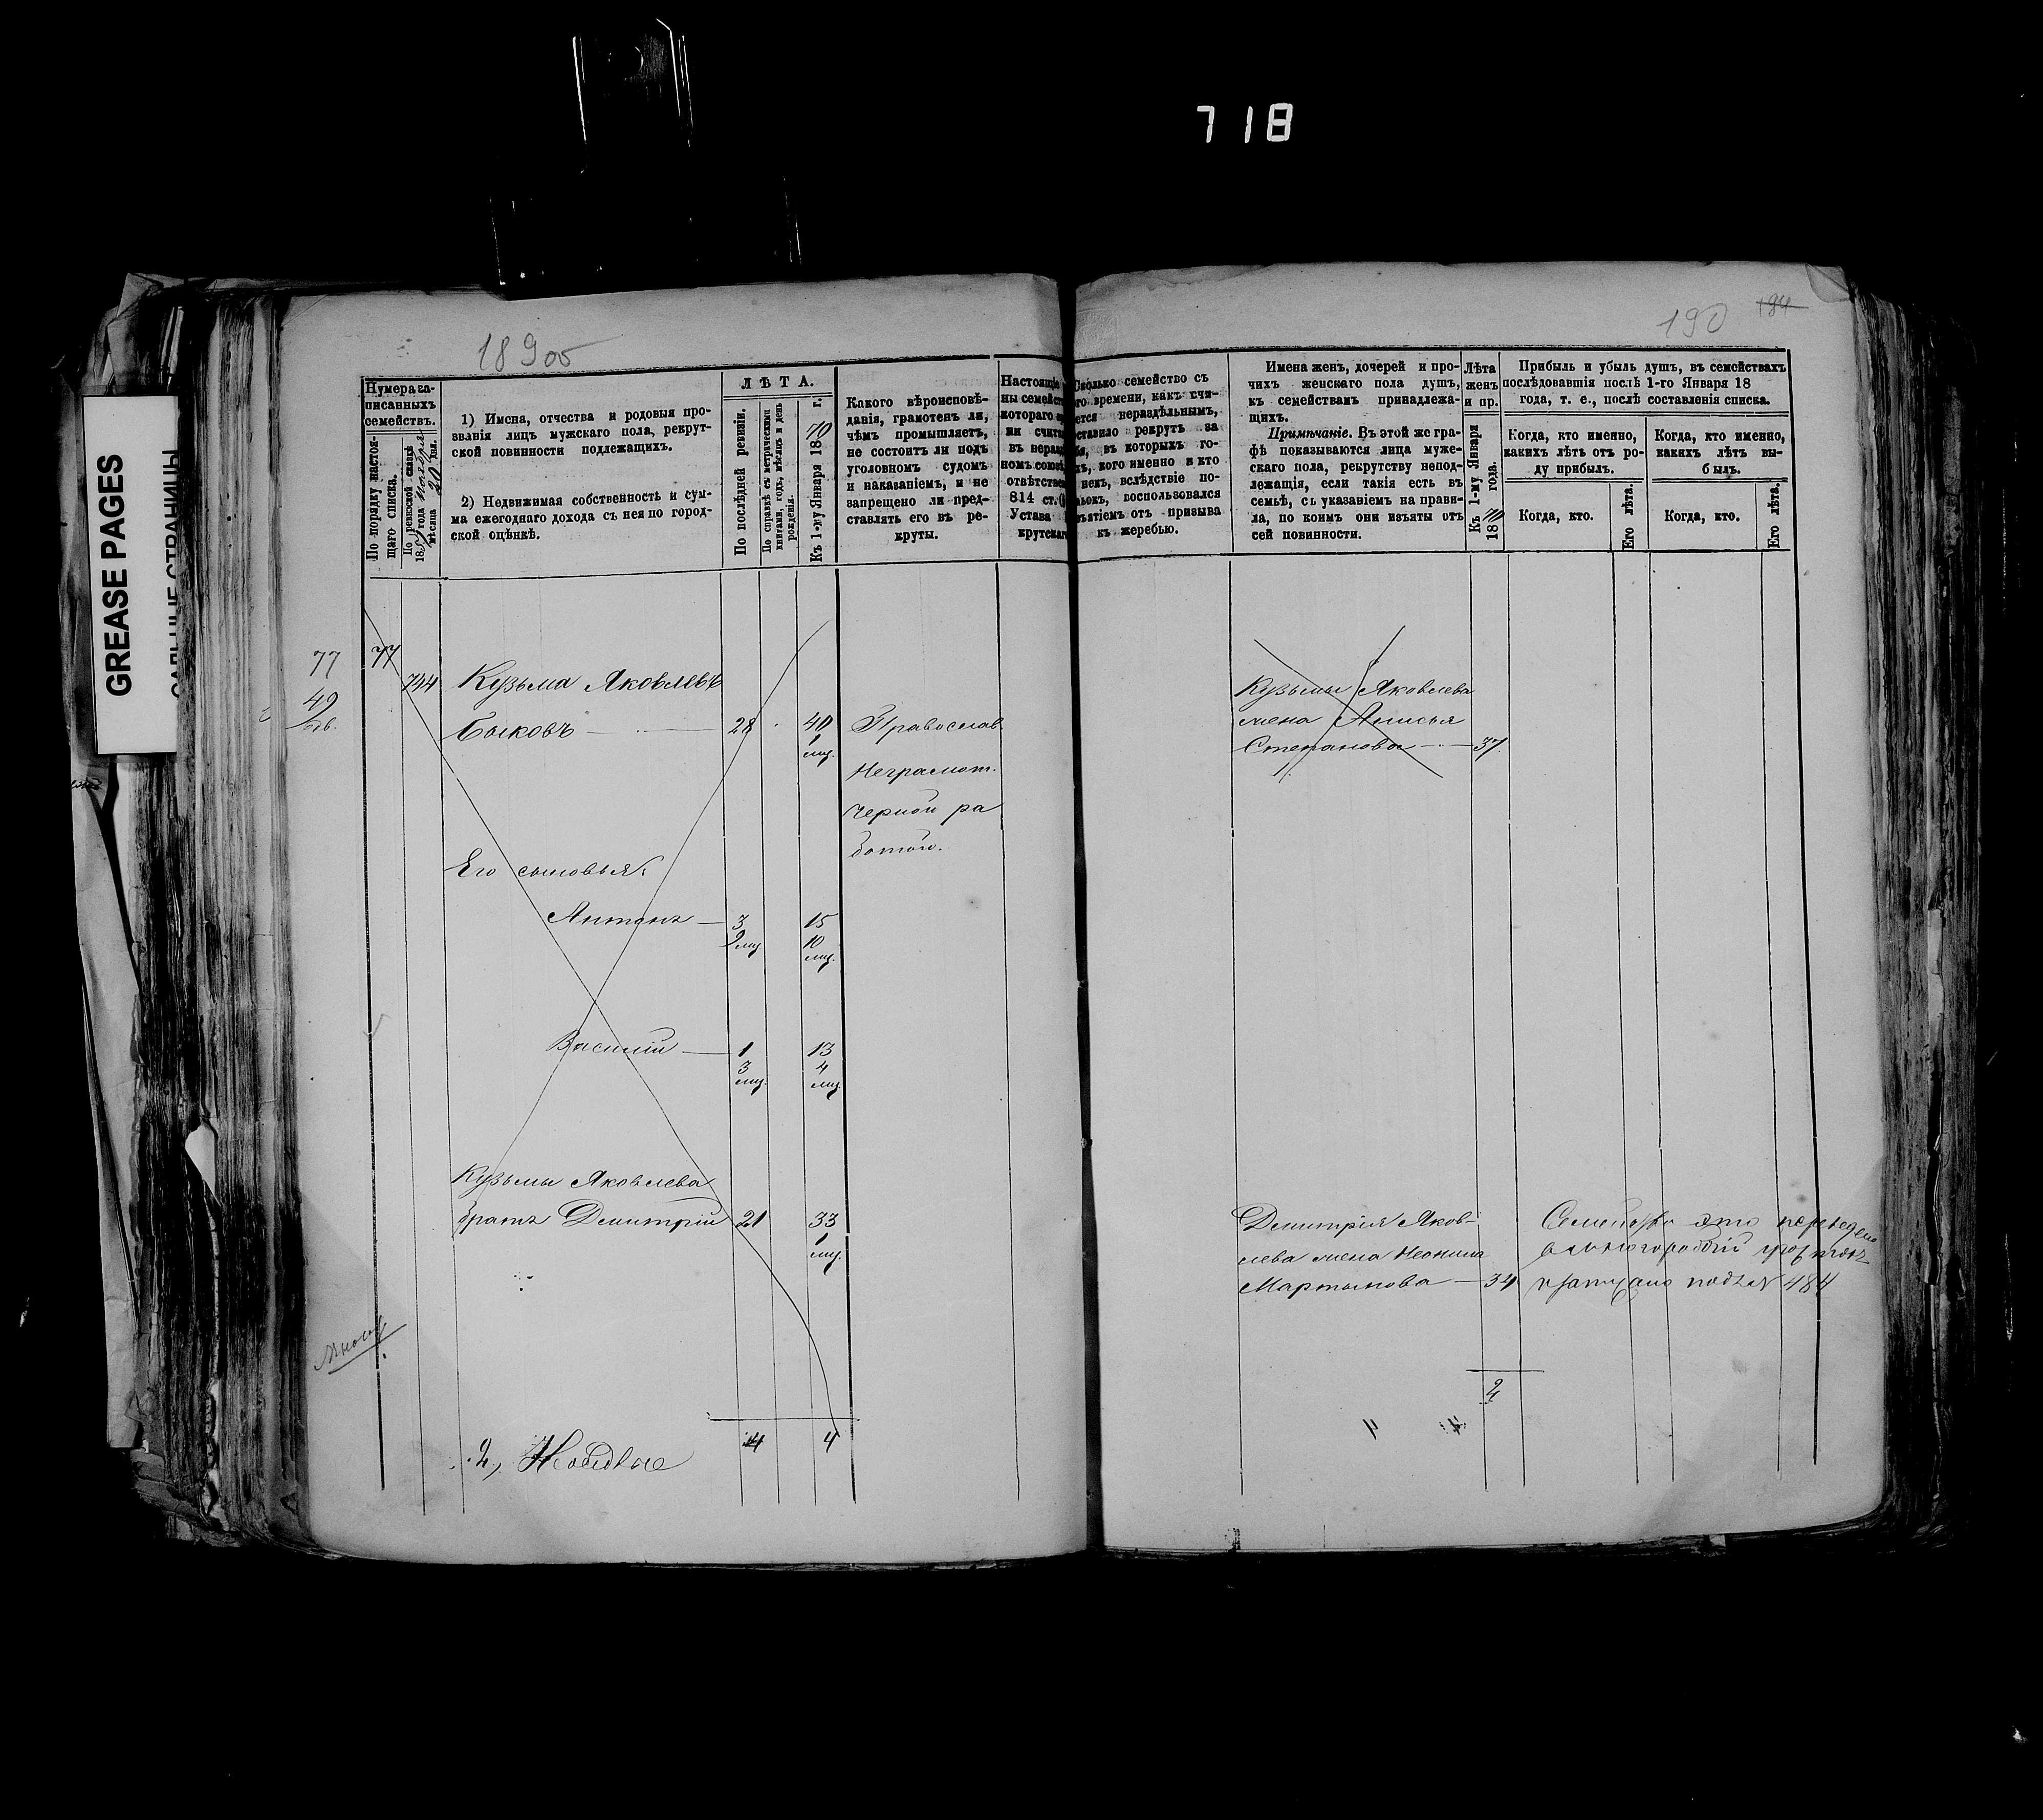 718
GREASE PAGES
САЛЬНЫЕ СТРАНИЦЫ
18 9 об
190
184
Нумера за-
писанныхъ
семействъ.
По порядку настоя-
щаго списка.
По ревизской сказкѣ
18 года Ноября
мѣсяца 20 дня.
1) Имена, отчества и родовыя про-
званія лицъ мужскаго пола, рекрут-
ской повинности подлежащихъ.
2) Недвижимая собственность и сум-
ма ежегоднаго дохода съ нея по город-
ской оцѣнкѣ.
ЛѢТА.
По послѣдней ревизіи.
По справкѣ съ метрическими
книгами, годъ, мѣсяцъ и день
рожденія.
Къ 1-му Января 1870 г.
Какого вѣроисповѣ-
данія, грамотенъ ли,
чѣмъ промышляетъ,
не состоитъ ли подъ
уголовномъ судомъ
и наказаніемъ, и не
запрещено ли пред-
ставлять его въ ре-
круты.
Настоящіе
ны семейст
котораго вр
ни счита
въ нераз
номъ союз
отвѣтствен
814 ст.
Устава
крутскаг
Сколько семейство съ
го времени, какъ счи-
ется нераздѣльнымъ,
ставило рекрутъ за
бя, въ которыхъ го-
хъ, кого именно и кто
нем, вслѣдствіе по-
воспользовался
зъятіемъ отъ призыва
къ жеребью.
Имена женъ, дочерей и про-
чихъ женскаго пола душъ,
къ семействамъ принадлежа-
щихъ.
Примѣчаніе. Въ этой же гра-
фѣ показываются лица муже-
скаго пола, рекрутству непод-
лежащія, если такія есть въ
семьѣ, съ указаніемъ на прави-
ла, по коимъ они изъяты отъ
сей повинности.
Лѣта
женъ
и пр.
Къ 1-му Января
1870 года.
Прибыль и убыль душъ, въ семействахъ
послѣдовавшія послѣ 1-го Января 18
года, т. е., послѣ составленія списка.
Когда, кто именно,
какихъ лѣтъ отъ ро-
ду прибылъ.
Когда, кто именно,
какихъ лѣтъ вы-
былъ.
Когда, кто.
Его лѣта.
Когда, кто.
Его лѣта.
77
49
77
744
Кузьма Яковлевъ
Быковъ 28 40
1
мц.
Православ.
Неграмот.
Черной ра
ботой.
Его сыновья:
Антонъ 3 15
9 мц 10
мц.
Василій 1 13
3 4
мц. мц.
Кузьмы Яковлева
братъ Димитрій 21 33
1
мц.
4 4
Кузьмы Яковлева
жена Анисья
Степанова 37.
Димитрія Яков-
лева жена Неонила
Мартынова 34
2
Семейство это переведено
484